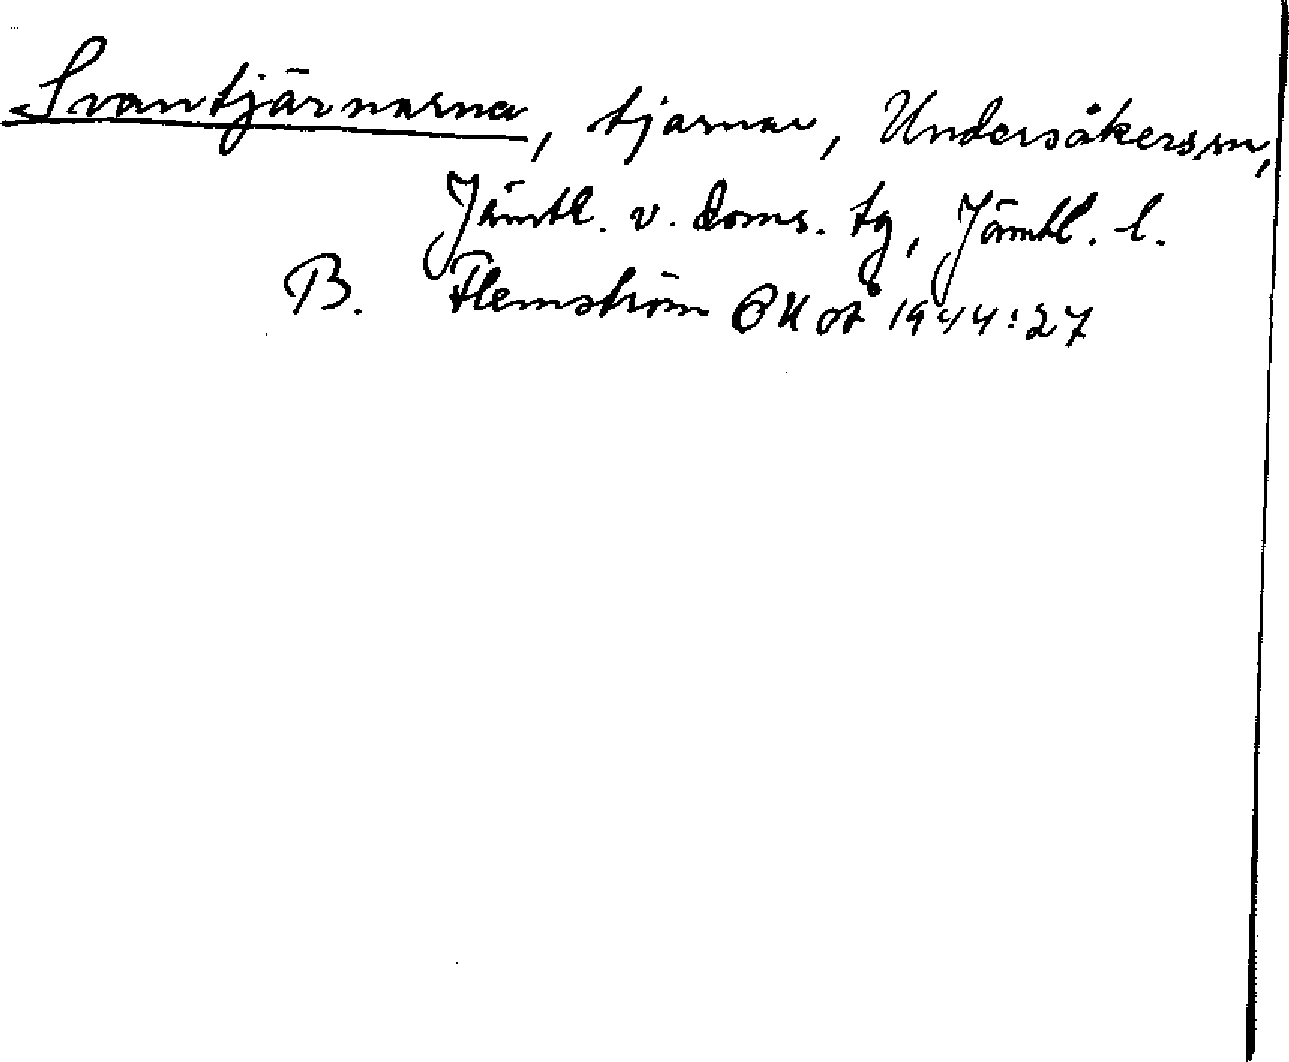 Svantjärnarna, tjärnar, Undersåkers sn,
Jämtl. v. doms. tg, Jämtl. l.
B. Flemström 1944:27